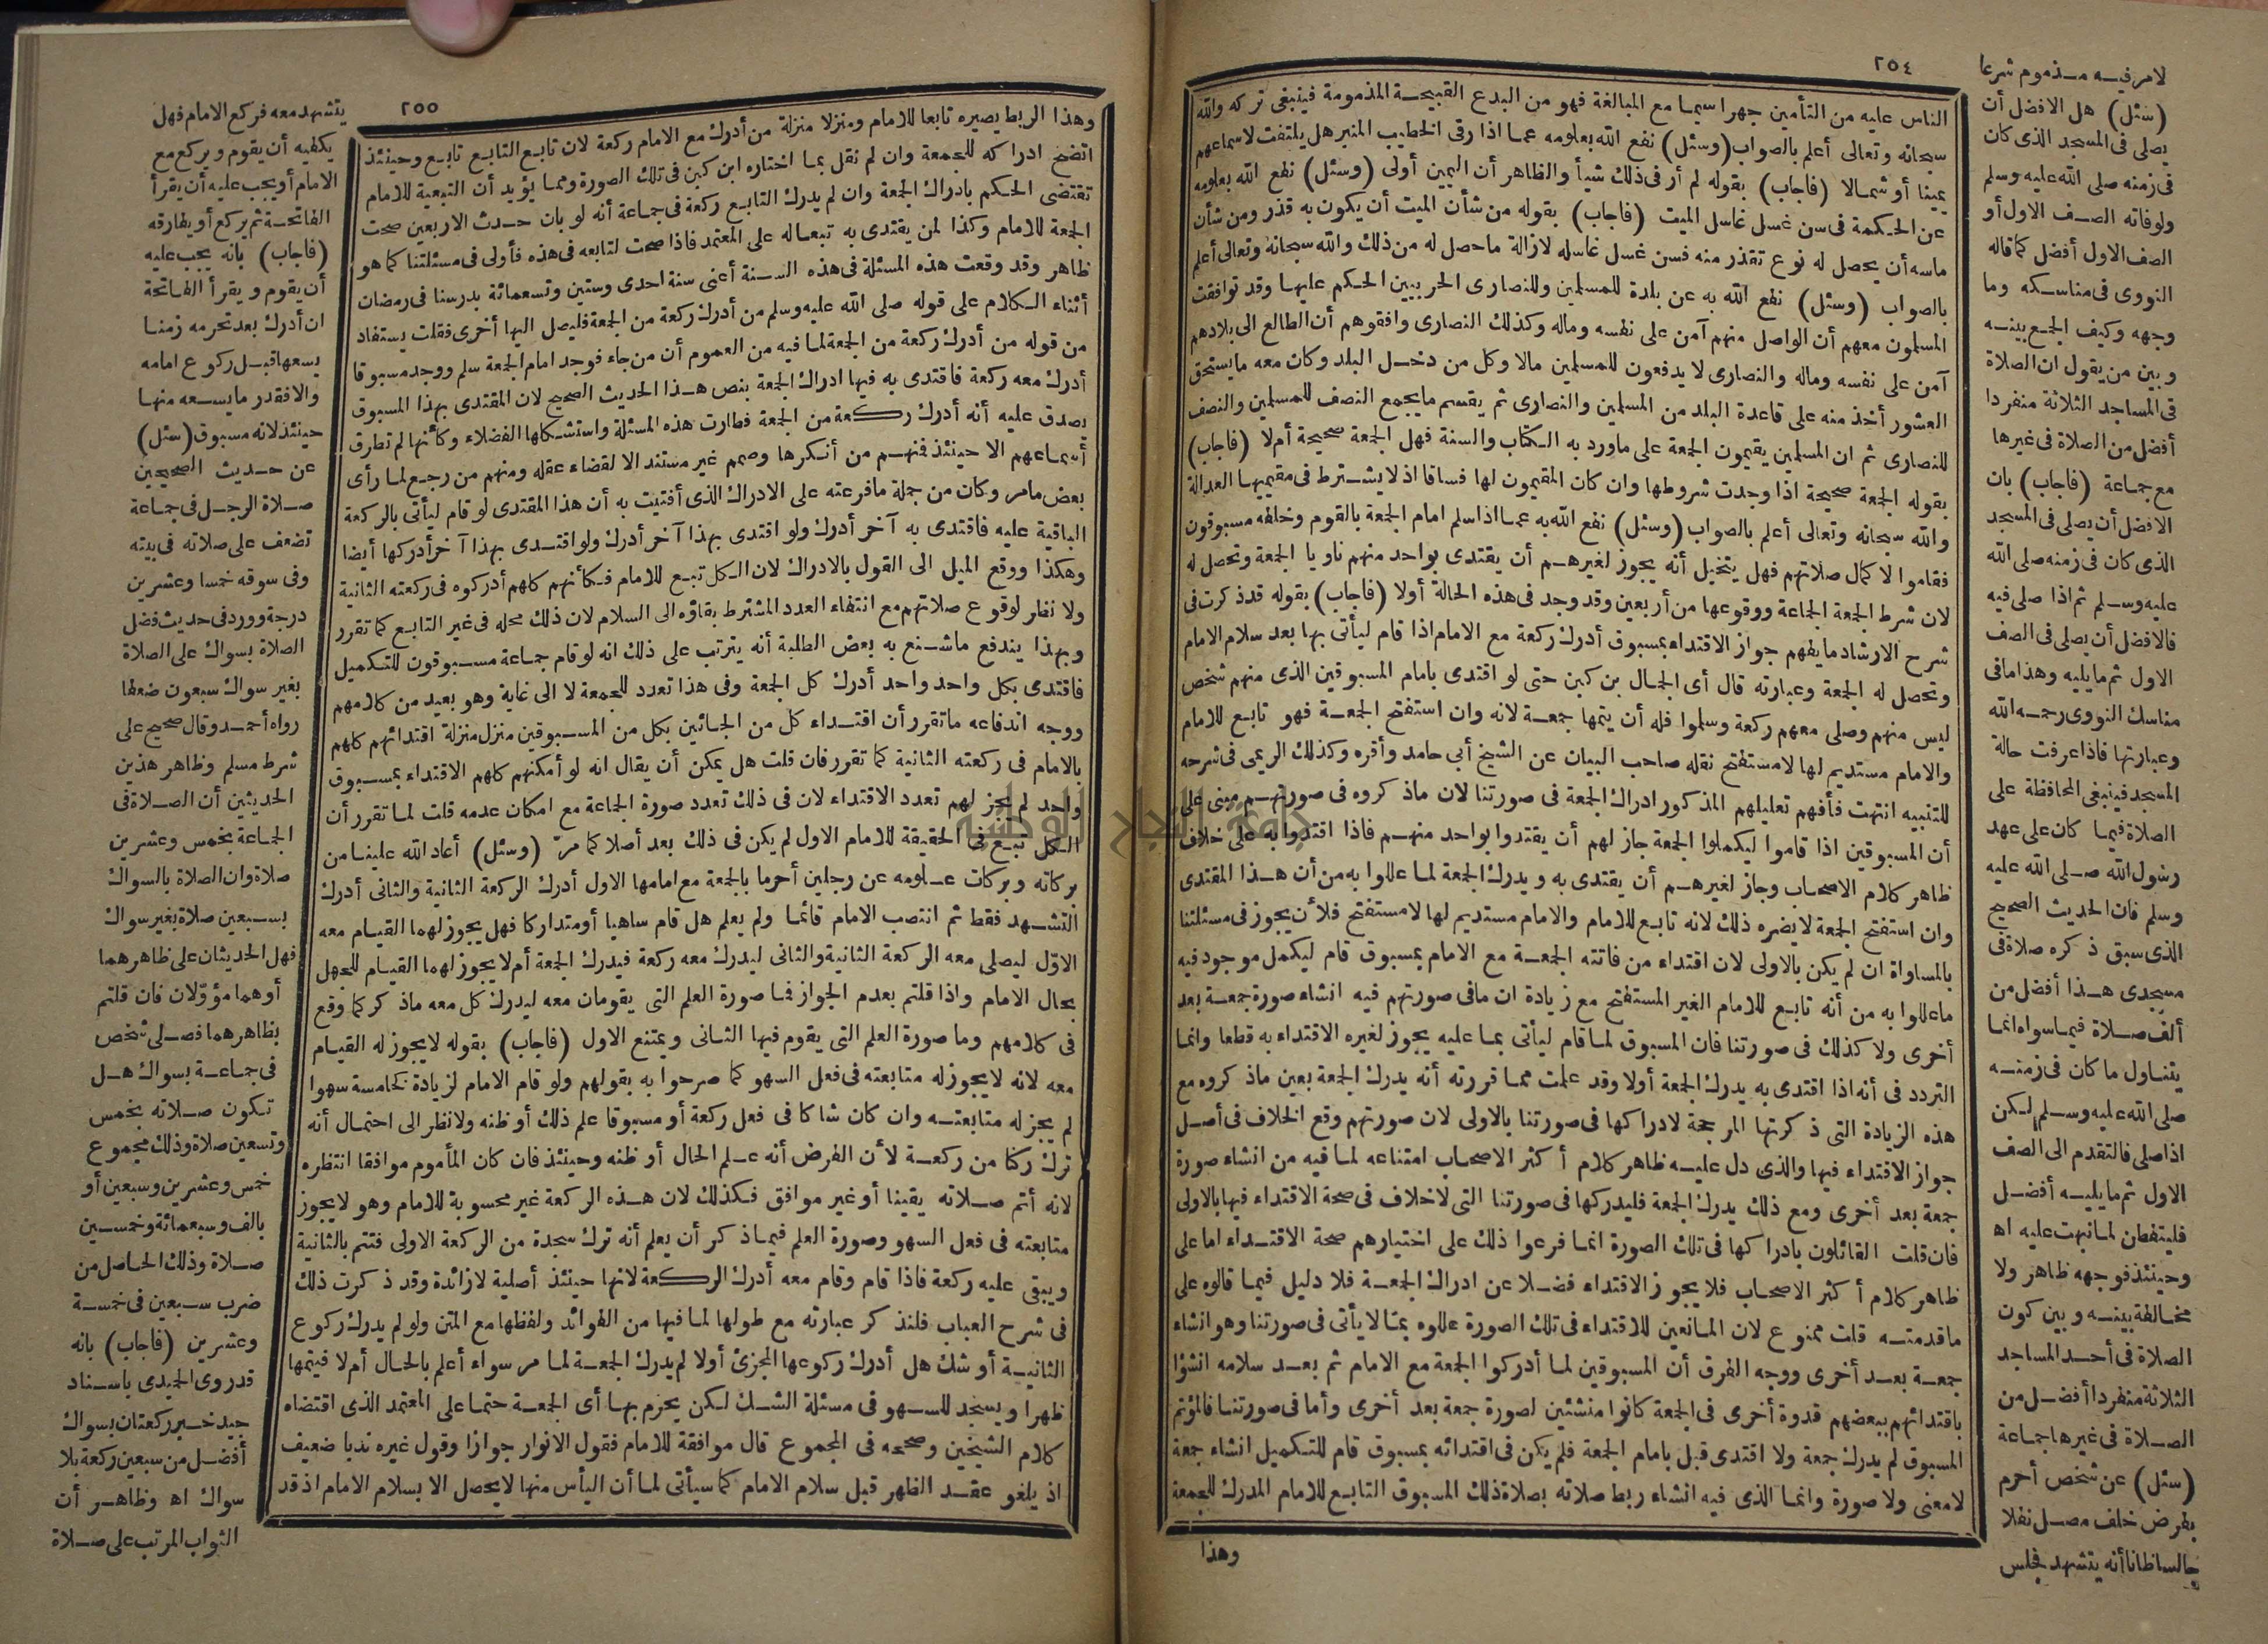 ٢٥٤
الناس عليه من التأمين جهرا سيما مع المبالغة فهو من البدع القبيحة المذمومة فينبغى تركه والله
سبحانه وتعالى أعلم بالصواب (وسئل) نفع الله بعلومه عما اذا رقى الخطيب المنبر هل يلتفت لاسماعهم
يمينا أو شمالا (فاجاب) بقوله لم أر فى ذلك شيأ والظاهر أن اليمين أولى (وسئل) نفع الله بعلومه
عن الحكمة فى سن غسل غاسل الميت (فاجاب) بقوله من شأن الميت أن يكون به قذر ومن شأن
ماسه أن يحصل له نوع تقذر منه فسن غسل غاسله لازالة ما حصل له من ذلك والله سبحانه وتعالى أعلم
بالصواب (وسئل) نفع الله به عن بلدة للمسلمين وللنصارى الحربيين الحكم عليها وقد توافقت
المسلمون معهم أن الواصل منهم آمن على نفسه وماله وكذلك النصارى وافقوهم أن الطالع الى بلادهم
آمن على نفسه وماله والنصارى لا يدفعون للمسلمين مالا وكل من دخل البلد وكان معه ما يستحق
العشور أخذ منه على قاعدة البلد من المسلمين والنصارى ثم يقسم ما يجمع النصف للمسلمين والنصف
للنصارى ثم ان المسلمين يقيمون الجمعة على ما ورد به الكتاب والسنة فهل الجمعة صحيحة أم لا (فاجاب)
بقوله الجمعة صحيحة اذا وجدت شروطها وان كان المقيمون لها فساقا اذ لا يشترط فى مقيميها العدالة
والله سبحانه وتعالى أعلم بالصواب (وسئل) نفع الله به عما اذا سلم امام الجمعة بالقوم وخلفه مسبوقون
فقاموا لاكمال صلاتهم فهل يتخيل أنه يجوز لغيرهم أن يقتدى بواحد منهم ناويا الجمعة وتحصل له
لان شرط الجمعة الجماعة ووقوعها من أربعين وقد وجد فى هذه الحالة أولا (فاجاب) بقوله قد ذكرت فى
شرح الارشاد ما يفهم جواز الاقتداء بمسبوق أدرك ركعة مع الامام اذا قام ليأتى بها بعد سلام الامام
وتحصل له الجمعة وعبارته قال أى الجمال بن كبن حتى لو اقتدى بامام المسبوقين الذى منهم شخص
ليس منهم وصلى معهم ركعة وسلموا فله أن يتمها جمعة لانه وان استفتح الجمعة فهو تابع للامام
والامام مستديم لها لا مستفتح نقله صاحب البيان عن الشيخ أبى حامد وأقره وكذلك الريمى فى شرحه
للتنبيه انتهت فأفهم تعليلهم المذكور ادراك الجمعة فى صورتنا لان ما ذكروه فى صورتهم مبنى على
أن المسبوقين اذا قاموا ليكملوا الجمعة جاز لهم أن يقتدوا بواحد منهم فاذا اقتدوا به على خلاف
ظاهر كلام الاصحاب وجاز لغيرهم أن يقتدى به ويدرك الجمعة لما عللوا به من أن هذا المقتدى
وان استفتح الجمعة لا يضره ذلك لانه تابع للامام والامام مستديم لها لا مستفتح فلأن يجوز فى مسئلتنا
بالمساواة ان لم يكن بالاولى لان اقتداء من فاتته الجمعة مع الامام بمسبوق قام ليكمل موجود فيه
ما عللوا به من أنه تابع للامام الغير المستفتح مع زيادة ان ما فى صورتهم فيه انشاء صورة جمعة بعد
أخرى ولا كذلك فى صورتنا فان المسبوق لما قام ليأتى بما عليه يجوز لغيره الاقتداء به قطعا وانما
التردد فى أنه اذا اقتدى به يدرك الجمعة أولا وقد علمت مما قررته أنه يدرك الجمعة بعين ما ذكروه مع
هذه الزيادة التى ذكرتها المرجحة لادراكها فى صورتنا بالاولى لان صورتهم وقع الخلاف فى أصل
جواز الاقتداء فيها والذى دل عليه ظاهر كلام أكثر الاصحاب امتناعه لما فيه من انشاء صورة
جمعة بعد أخرى ومع ذلك يدرك الجمعة فليدركها فى صورتنا التى لا خلاف فى صحة الاقتداء فيها بالاولى
فان قلت القائلون بادراكها فى تلك الصورة انما فرعوا ذلك على اختيارهم صحة الاقتداء اما على
ظاهر كلام أكثر الاصحاب فلا يجوز الاقتداء فضلا عن ادراك الجمعة فلا دليل فيما قالوه على
ما قدمته قلت ممنوع لان المانعين للاقتداء فى تلك الصورة عللوه بما لا يأتى فى صورتنا وهو انشاء
جمعة بعد أخرى ووجه الفرق أن المسبوقين لما أدركوا الجمعة مع الامام ثم بعد سلامه انشؤا
باقتدائهم ببعضهم قدوة أخرى فى الجمعة كانوا منشئين لصورة جمعة بعد أخرى وأما فى صورتنا فالمؤتم
المسبوق لم يدرك جمعة ولا اقتدى قبل بامام الجمعة فلم يكن فى اقتدائه بمسبوق قام للتكميل انشاء جمعة
لا معنى ولا صورة وانما الذى فيه انشاء ربط صلاته بصلاة ذلك المسبوق التابع للامام المدرك للجمعة
وهذا
لامر فيه مذموم شرعا
(سئل) هل الافضل أن
يصلى فى المسجد الذى كان
فى زمنه صلى الله عليه وسلم
ولو فاته الصف الاول أو
الصف الاول أفضل كما قاله
النووى فى مناسكه وما
وجهه وكيف الجمع بينه
وبين من يقول ان الصلاة
فى المساجد الثلاثة منفردا
أفضل من الصلاة فى غيرها
مع جماعة (فاجاب) بان
الافضل أن يصلى فى المسجد
الذى كان فى زمنه صلى الله
عليه وسلم ثم اذا صلى فيه
فالافضل أن يصلى فى الصف
الاول ثم ما يليه وهذا ما فى
مناسك النووى رحمه الله
وعبارتها فاذا عرفت حالة
المسجد فينبغى المحافظة على
الصلاة فيما كان على عهد
رسول الله صلى الله عليه
وسلم فان الحديث الصحيح
الذى سبق ذكره صلاة فى
مسجدى هذا أفضل من
ألف صلاة فيما سواه انما
يتناول ما كان فى زمنه
صلى الله عليه وسلم لكن
اذا صلى فالتقدم الى الصف
الاول ثم ما يليه أفضل
فليتفطن لما نبهت عليه اه
وحينئذ فوجهه ظاهر ولا
مخالفة بينه وبين كون
الصلاة فى أحد المساجد
الثلاثة منفردا أفضل من
الصلاة فى غيرها جماعة
(سئل) عن شخص أحرم
بفرض خلف مصل نفلا
جالسا ظانا أنه يتشهد فجلس
٢٥٥
وهذا الربط يصيره تابعا للامام ومنزلا منزلة من أدرك مع الامام ركعة لان تابع التابع تابع وحينئذ
اتضح ادراكه للجمعة وان لم نقل بما اختاره ابن كبن فى تلك الصورة ومما يؤيد أن التبعية للامام
تقتضى الحكم بادراك الجمعة وان لم يدرك التابع ركعة فى جماعة أنه لو بان حدث الاربعين صحت
الجمعة للامام وكذا لمن يقتدى به تبعا له على المعتمد فاذا صحت لتابعه فى هذه فأولى فى مسئلتنا كما هو
ظاهر وقد وقعت هذه المسئلة فى هذه السنة أعنى سنة احدى وستين وتسعمائة بدرسنا فى رمضان
أثناء الكلام على قوله صلى الله عليه وسلم من أدرك ركعة من الجمعة فليصل اليها أخرى فقلت يستفاد
من قوله من أدرك ركعة من الجمعة لما فيه من العموم أن من جاء فوجد امام الجمعة سلم ووجد مسبوقا
أدرك معه ركعة فاقتدى به فيها ادراك الجمعة بنص هذا الحديث الصحيح لان المقتدى بهذا المسبوق
يصدق عليه أنه أدرك ركعة من الجمعة فطارت هذه المسئلة واستشكلها الفضلاء وكأنها لم تطرق
أسماعهم الا حينئذ فمنهم من أنكرها وصمم غير مستند الا لقضاء عقله ومنهم من رجع لما رأى
بعض ما مر وكان من جملة ما فرعته على الادراك الذى أفتيت به أن هذا المقتدى لو قام ليأتى بالركعة
الباقية عليه فاقتدى به آخر أدرك ولو اقتدى بهذا آخر أدرك ولو اقتدى بهذا آخر أدركها أيضا
وهكذا ووقع الميل الى القول بالادراك لان الكل تبع للامام فكأنهم كلهم أدركوه فى ركعته الثانية
ولا نظر لوقوع صلاتهم مع انتفاء العدد المشترط بقاؤه الى السلام لان ذلك محله فى غير التابع كما تقرر
وبهذا يندفع ما شنع به بعض الطلبة أنه يترتب على ذلك انه لو قام جماعة مسبوقون للتكميل
فاقتدى بكل واحد واحد أدرك كل الجمعة وفى هذا تعدد للجمعة لا الى غاية وهو بعيد من كلامهم
ووجه اندفاعه ما تقرر أن اقتداء كل من الجائين بكل من المسبوقين منزل منزلة اقتدائهم كلهم
بالامام فى ركعته الثانية كما تقرر فان قلت هل يمكن أن يقال انه لو أمكنهم كلهم الاقتداء بمسبوق
واحد لم يجز لهم تعدد الاقتداء لان فى ذلك تعدد صورة الجماعة مع امكان عدمه قلت لما تقرر أن
الكل تبع فى الحقيقة للامام الاول لم يكن فى ذلك بعد أصلا كما مر (وسئل) أعاد الله علينا من
بركاته وبركات علومه عن رجلين أحرما بالجمعة مع امامها الاول أدرك الركعة الثانية والثانى أدرك
التشهد فقط ثم انتصب الامام قائما ولم يعلم هل قام ساهيا أو متداركا فهل يجوز لهما القيام معه
الاول ليصلى معه الركعة الثانية والثانى ليدرك معه ركعة فيدرك الجمعة أم لا يجوز لهما القيام للجهل
بحال الامام واذا قلتم بعدم الجواز فما صورة العلم التى يقومان معه ليدرك كل معه ما ذكر كما وقع
فى كلامهم وما صورة العلم التى يقوم فيها الثانى ويمتنع الاول (فاجاب) بقوله لا يجوز له القيام
معه لانه لا يجوز له متابعته فى فعل السهو كما صرحوا به بقولهم ولو قام الامام لزيادة كخامسة سهوا
لم يجز له متابعته وان كان شاكا فى فعل ركعة أو مسبوقا علم ذلك أو ظنه ولا نظر الى احتمال أنه
ترك ركنا من ركعة لأن الفرض أنه علم الحال أو ظنه وحينئذ فان كان المأموم موافقا انتظره
لانه أتم صلاته يقينا أو غير موافق فكذلك لان هذه الركعة غير محسوبة للامام وهو لا يجوز
متابعته فى فعل السهو وصورة العلم فيما ذكر أن يعلم أنه ترك سجدة من الركعة الاولى فتتم بالثانية
ويبقى عليه ركعة فاذا قام وقام معه أدرك الركعة لانها حينئذ أصلية لا زائدة وقد ذكرت ذلك
فى شرح العباب فلنذكر عبارته مع طولها لما فيها من الفوائد ولفظها مع المتن ولو لم يدرك ركوع
الثانية أو شك هل أدرك ركوعها المجزئ أولا لم يدرك الجمعة لما مر سواء أعلم بالحال أم لا فيتمها
ظهرا ويسجد للسهو فى مسئلة الشك لكن يحرم بها أى الجمعة حتما على المعتمد الذى اقتضاه
كلام الشيخين وصححه فى المجموع قال موافقة للامام فقول الانوار جوازا وقول غيره ندبا ضعيف
اذ يلغو عقد الظهر قبل سلام الامام كما سيأتى لما أن اليأس منها لا يحصل الا بسلام الامام اذ قد
يتشهد معه فركع الامام فهل
يكفيه أن يقوم ويركع مع
الامام أو يجب عليه أن يقرأ
الفاتحة ثم يركع أو يفارقه
(فاجاب) بانه يجب عليه
أن يقوم ويقرأ الفاتحة
ان أدرك بعد تحرمه زمنا
يسعها قبل ركوع امامه
والا فقدر ما يسعه منها
حينئذ لانه مسبوق (سئل)
عن حديث الصحيحين
صلاة الرجل فى جماعة
تضعف على صلاته فى بيته
وفى سوقه خمسا وعشرين
درجة وورد فى حديث فضل
الصلاة بسواك على الصلاة
بغير سواك سبعون ضعفا
رواه أحمد وقال صحيح على
شرط مسلم وظاهر هذين
الحديثين أن الصلاة فى
الجماعة بخمس وعشرين
صلاة وان الصلاة بالسواك
بسبعين صلاة بغير سواك
فهل الحديثان على ظاهرهما
أو هما مؤولان فان قلتم
بظاهرهما فصلى شخص
فى جماعة بسواك هل
تكون صلاته بخمس
وتسعين صلاة وذلك مجموع
خمس وعشرين وسبعين أو
بالف وسبعمائة وخمسين
صلاة وذلك الحاصل من
ضرب سبعين فى خمسة
وعشرين (فاجاب) بانه
قد روى الحميدى باسناد
جيد خبر ركعتان بسواك
أفضل من سبعين ركعة بلا
سواك اه وظاهر أن
الثواب المرتب على صلاة
جامعة النجاح الوطنية